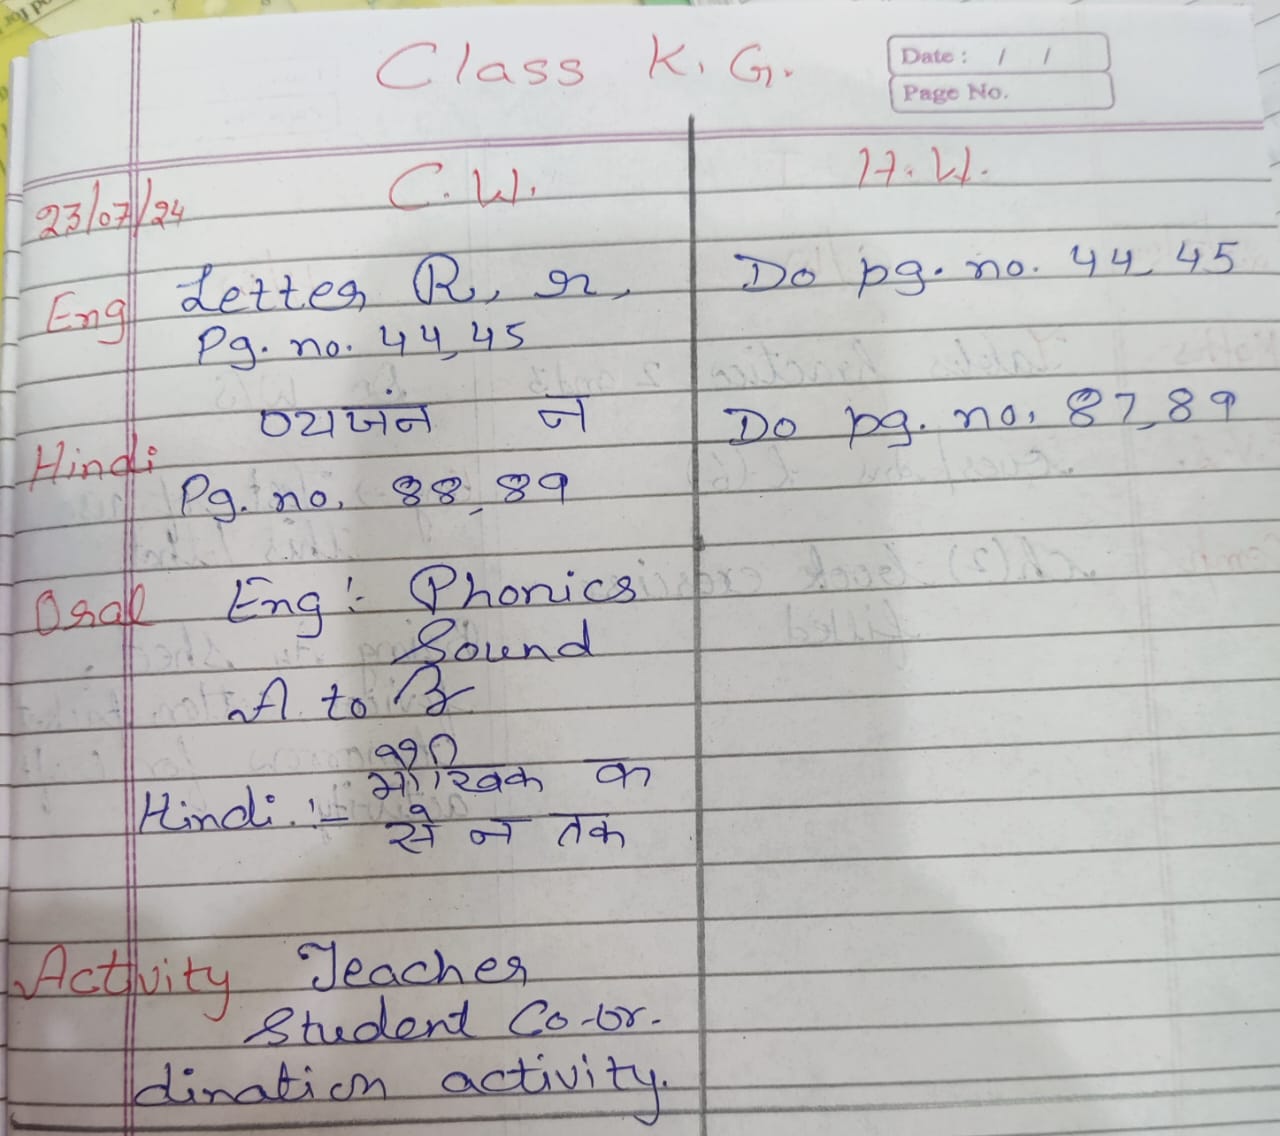 Class K. G.
Date : / /
Page No.
C.W. H.W.
23/07/24
Eng Letter R, r, Do pg. no. 44, 45
Pg. no. 44, 45
व्यजंन न Do pg. no. 87, 89
Hindi
Pg. no. 88, 89
Oral Eng :- Phonics
Sound
A to Z
मौखिक क
Hindi :- से न तक
Activity Teacher
Student Co-or-
dination activity.